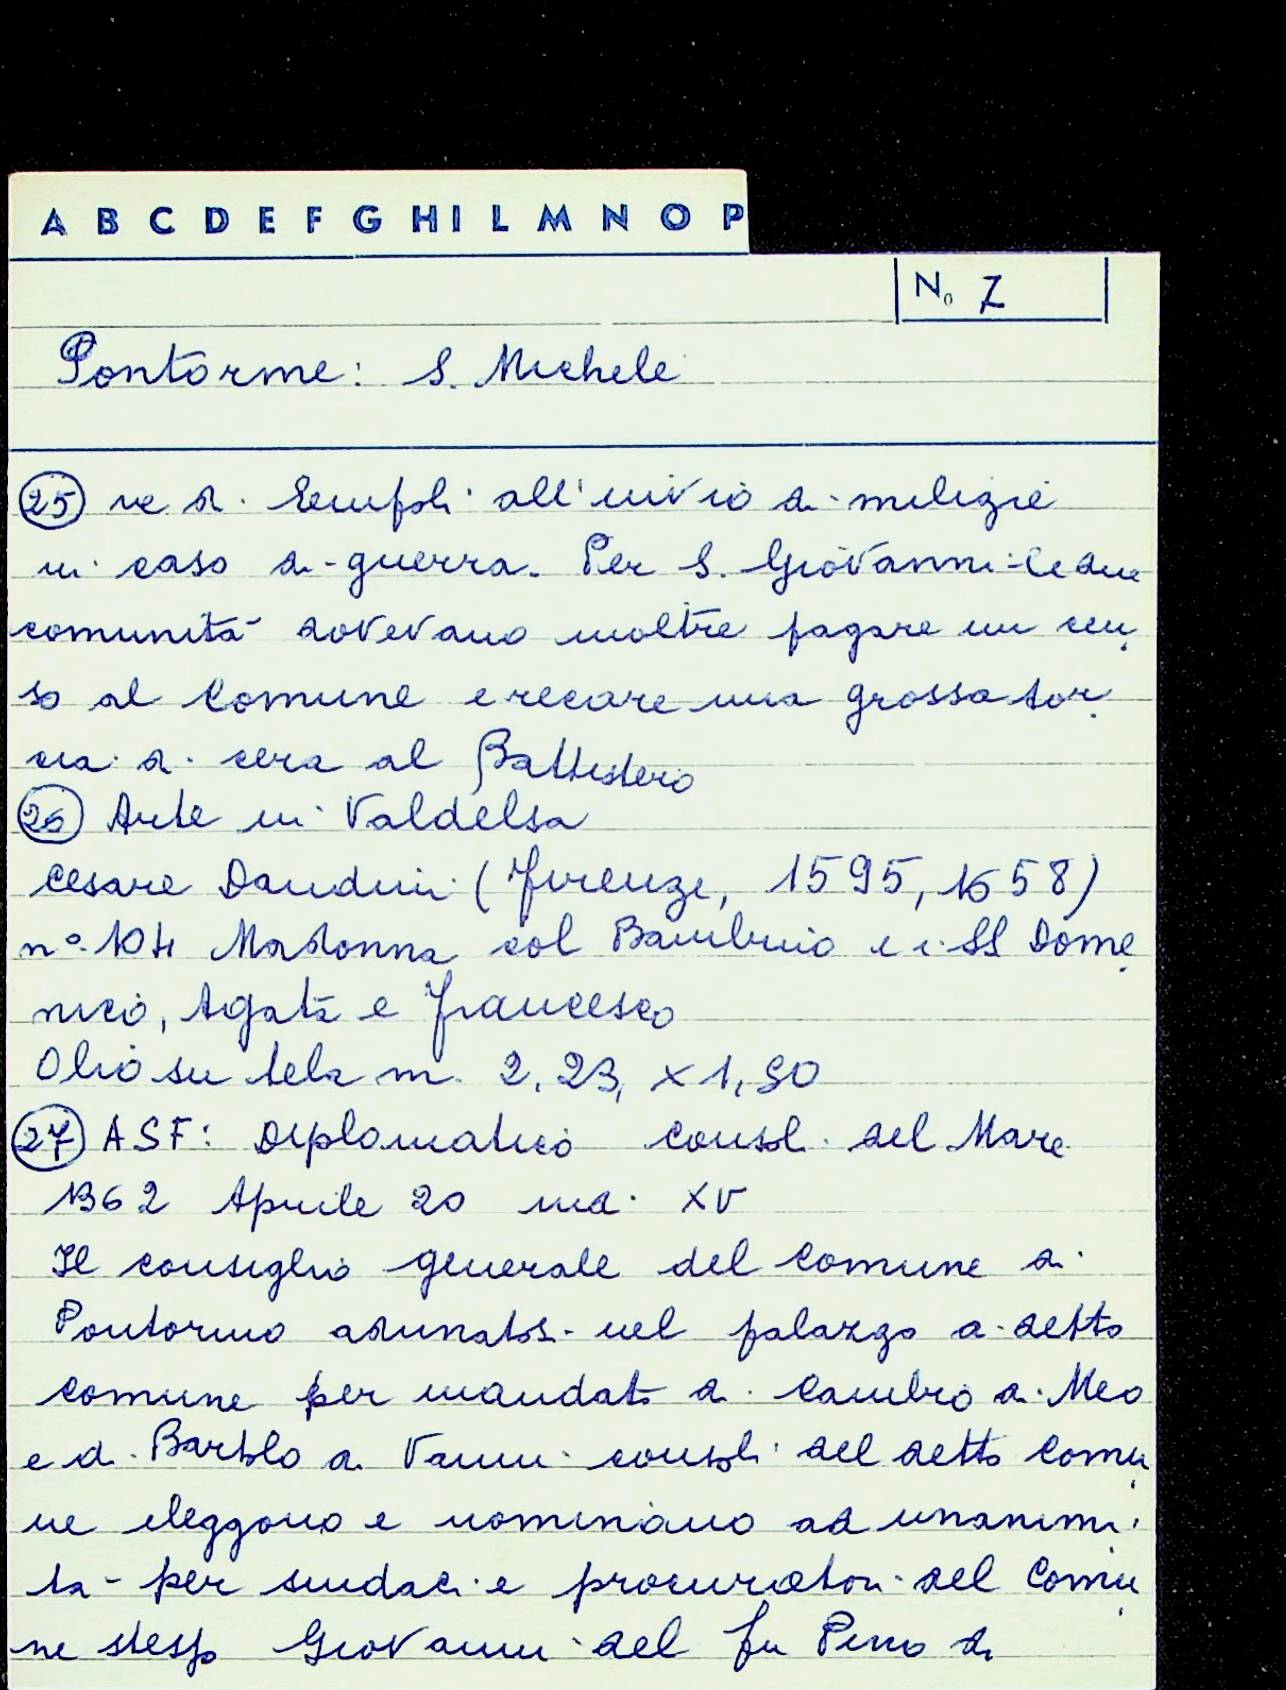 A B C D E F G H I L M N O P
No 7
Pontorme: S. Michele
25 ne di Empoli all'invio di milizie
in caso di guerra. Per S. Giovanni le due
comunità dovevano inoltre pagare un cen
so al Comune e recare una grossa tor
cia di cera al Battistero
26 Arte in Valdelsa
Cesare Dandini (Firenze, 1595, 1658)
n° 104 Madonna col Bambino e i SS Dome
nico, Agata e Francesco
Olio su tela m. 2,23, x 1,90
27 ASF: Diplomatico Consoli del Mare
1362 Aprile 20 ind. XV
Il consiglio generale del Comune di
Pontormo adunatosi nel palazzo di detto
comune per mandato di Cambio di Meo
e di Bartolo di Vanni consoli del detto Comu
ne eleggono e nominano ad unanimi
tà per sindaci e procuratori del Comu
ne stesso Giovanni del fu Piero di